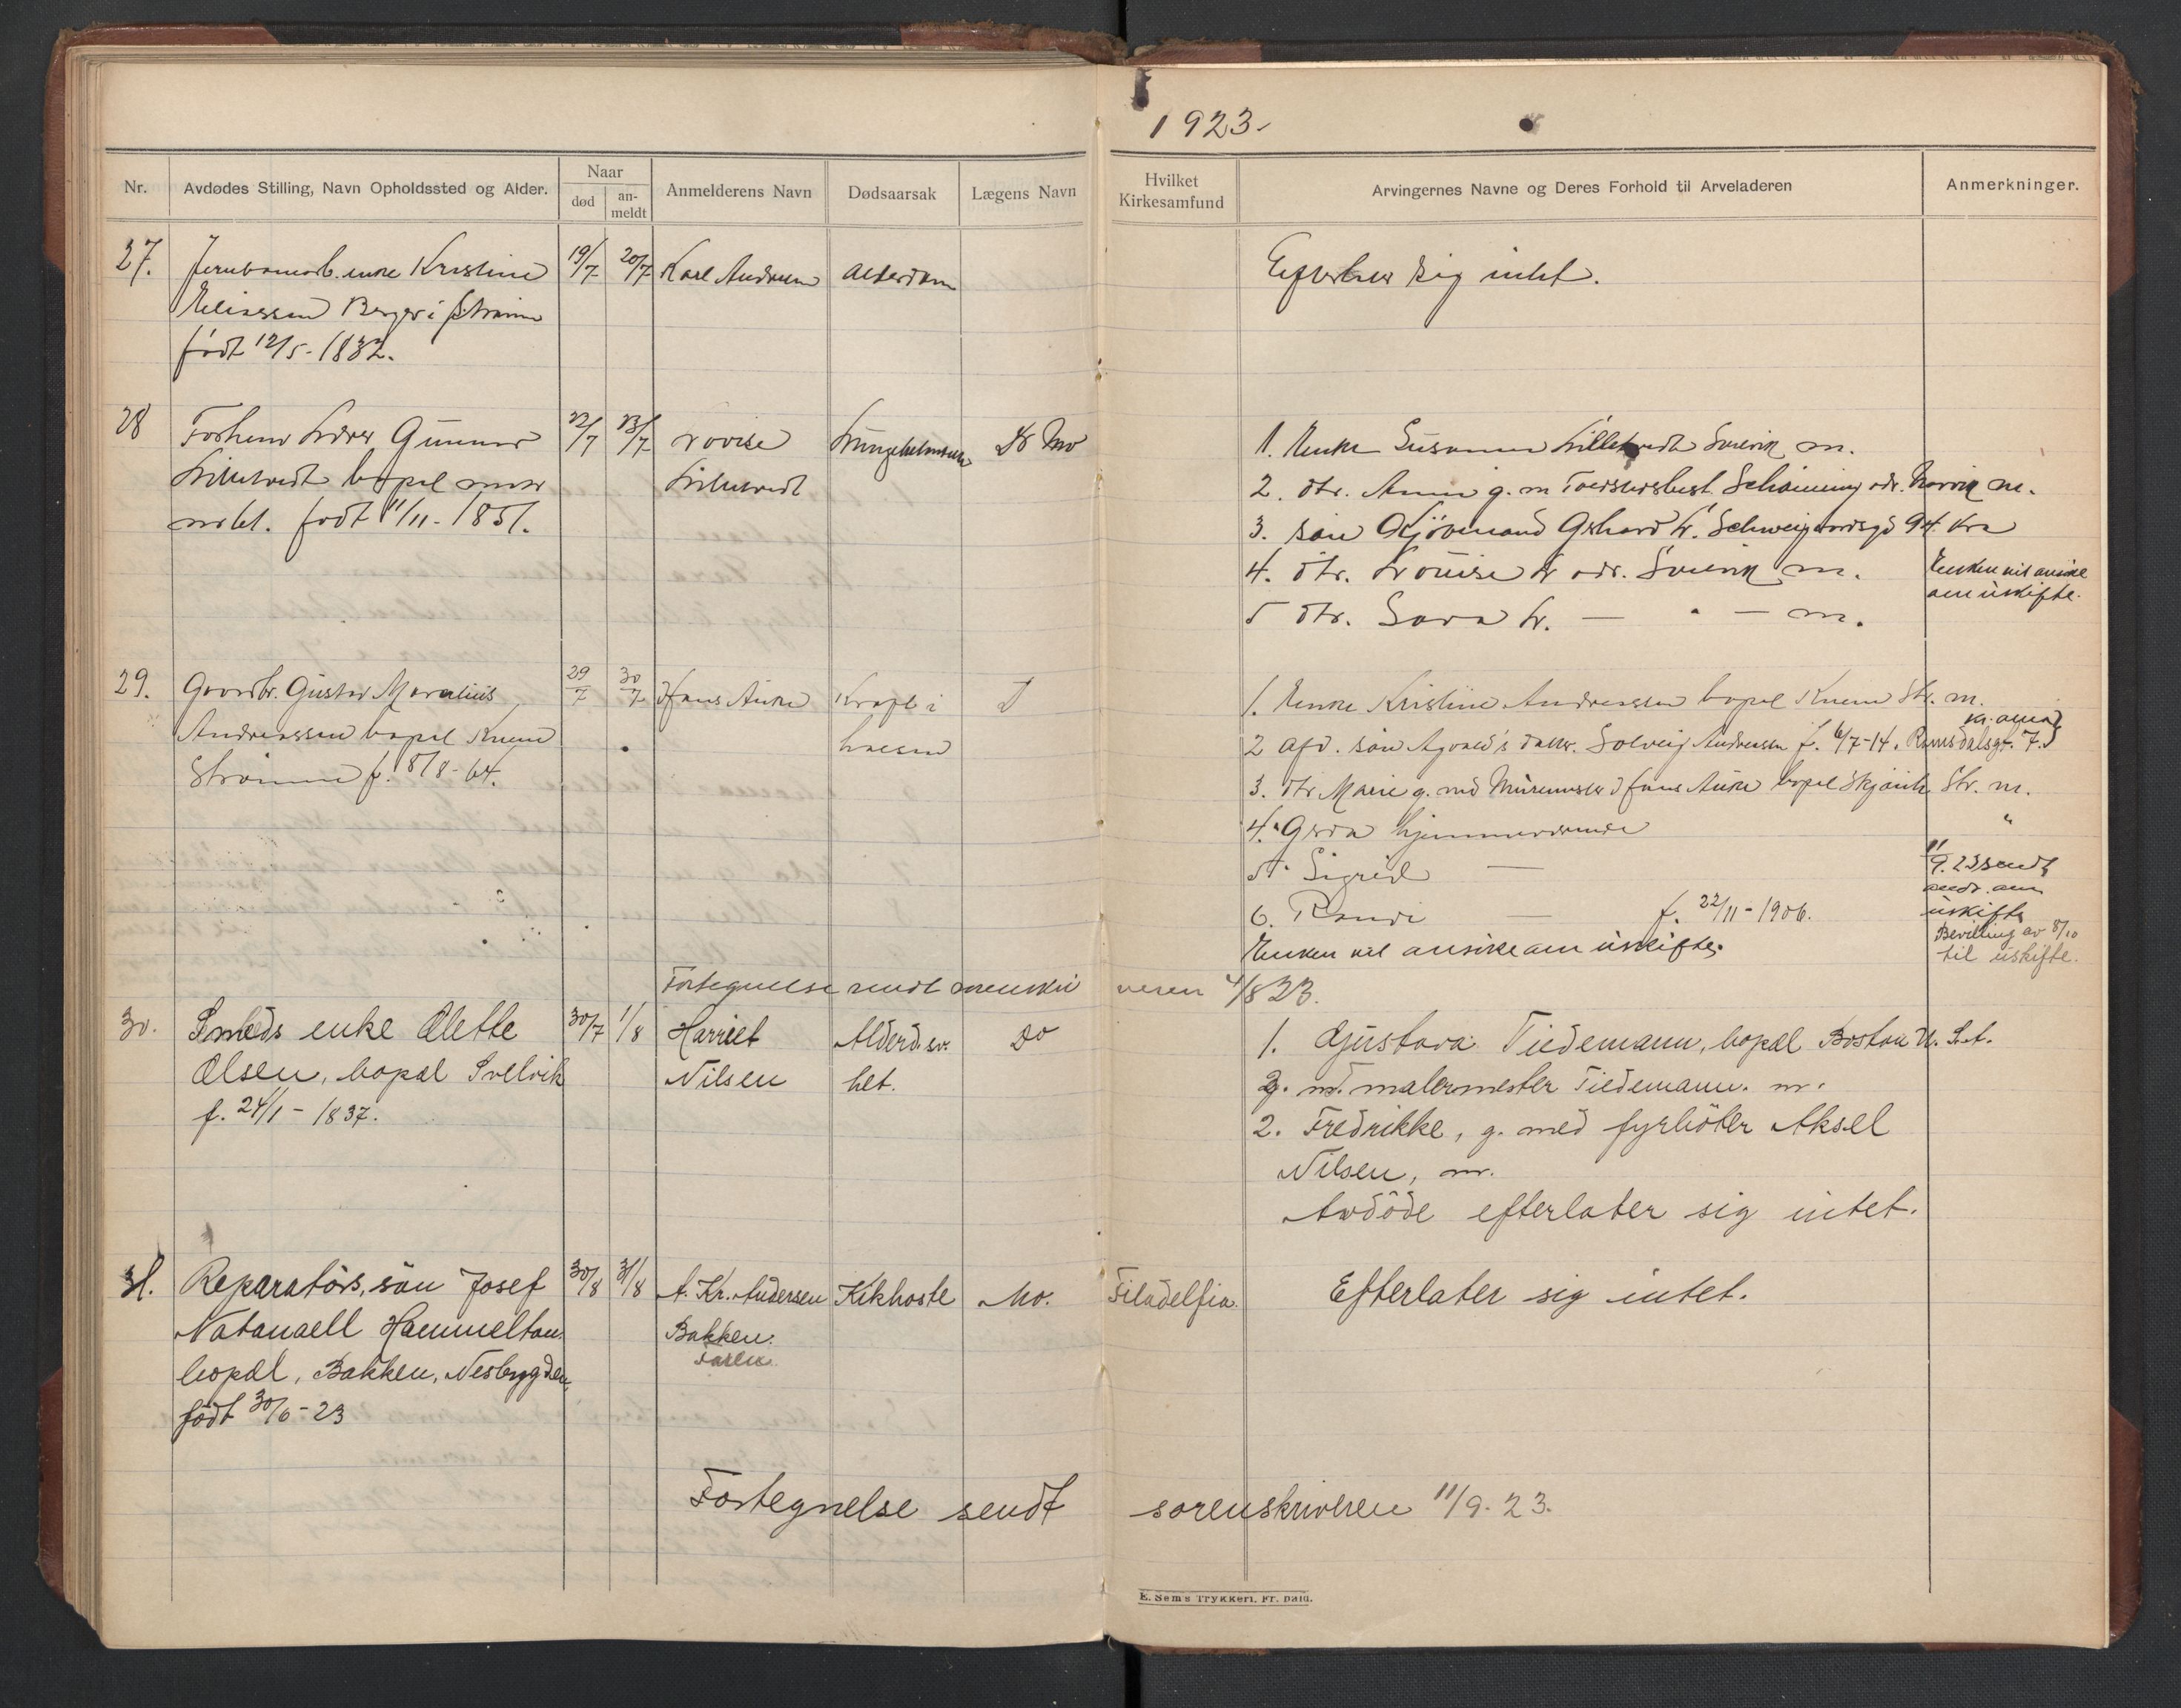 1923-
Nr.
Avdødes Stilling, Navn Opholdssted og Alder.
Naar
død
an-
meldt
Anmelderens Navn
Dødsaarsak
Lægens Navn
Hvilket
Kirkesamfund
Arvingernes Navne og Deres Forhold til Arveladeren
Anmerkninger.
27.
enke Kristine
Berger i Strømm
født 12/5-1832.
19/7
20/7
Karl Andresen
Alderdom
Efterlater sig intet.
28
Forhenv Lærer Gunnar
Lilletvedt bopæl
født 11/11-1851.
22/7
23/7
Lovise
Lilletvedt
Dr Mo
1. Enke Susanne Lilletvedt Svelvik m.
2. dtr. Anna g. m Toldkasserer Schøning adr. Narvik m.
3. søn Gerhard L. Schweigaardsgd 94. Kra
4. dtr. Louise L adr. Svelvik m.
5 dtr. Sara L. — " — m.
Enken vil ansøke
om uskifte.
29.
Gaardbr. Gustav Marelius
Andreassen bopæl Knem
Strømm f. 8/8-64.
29/7
30/7
Hans Auke
Kræft i
halsen
1. Enke Kristine Andreassen bopæl Knem Str. m.
2 Afd. søn Agvald's datter Solveig Andreasen f. 6/7-14. Romsdalsgt. 7.
3. dtr Marie g. med Murmester Hans Auke bopæl Str. m.
4. " Gerda hjemmeværende "
5. " Sigrid —
6. Randi — f. 22/11-1906.
Enken vil ansøke om uskifte.
11/9. 23 sendt
andr. om
uskifte
Bevilling av 8/10
til uskifte.
Fortegnelse sendt sorenskri veren 4/8 23.
30.
Smeds enke Olette
Olsen, bopæl Svelvik
f. 24/1-1837.
30/7
1/8
Harriet
Nilsen
Alderd.sv.
het.
Do
1. Gjustava Tiedemann, bopæl Boston U. S.A.
g. m. malermester Tiedemann. m.
2. Fredrikke, g. med fyrbøter Aksel
Nilsen, m.
Avdöde efterlater sig intet.
31.
Reparatörs, sön Josef
Natanaell Hammeltou
bopæl, Bakken, Nesbygden,
født 30/6-23
30/8
31/8
A. Kr. Andersen
Bakken.
Kikhoste
Mo.
Filadelfia.
Efterlater sig intet.
Fortegnelse sendt sorenskriveren 11/9. 23.
E. Sem's Trykkeri, Fr. Hald.